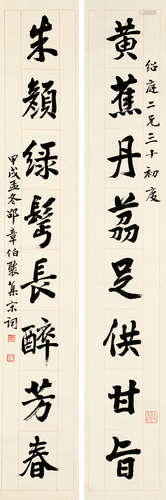 绍庭二兄三十初度
黄蕉丹荔足供甘旨
朱颜绿鬓长醉芳春
甲戌孟冬邵章伯褧集宋词